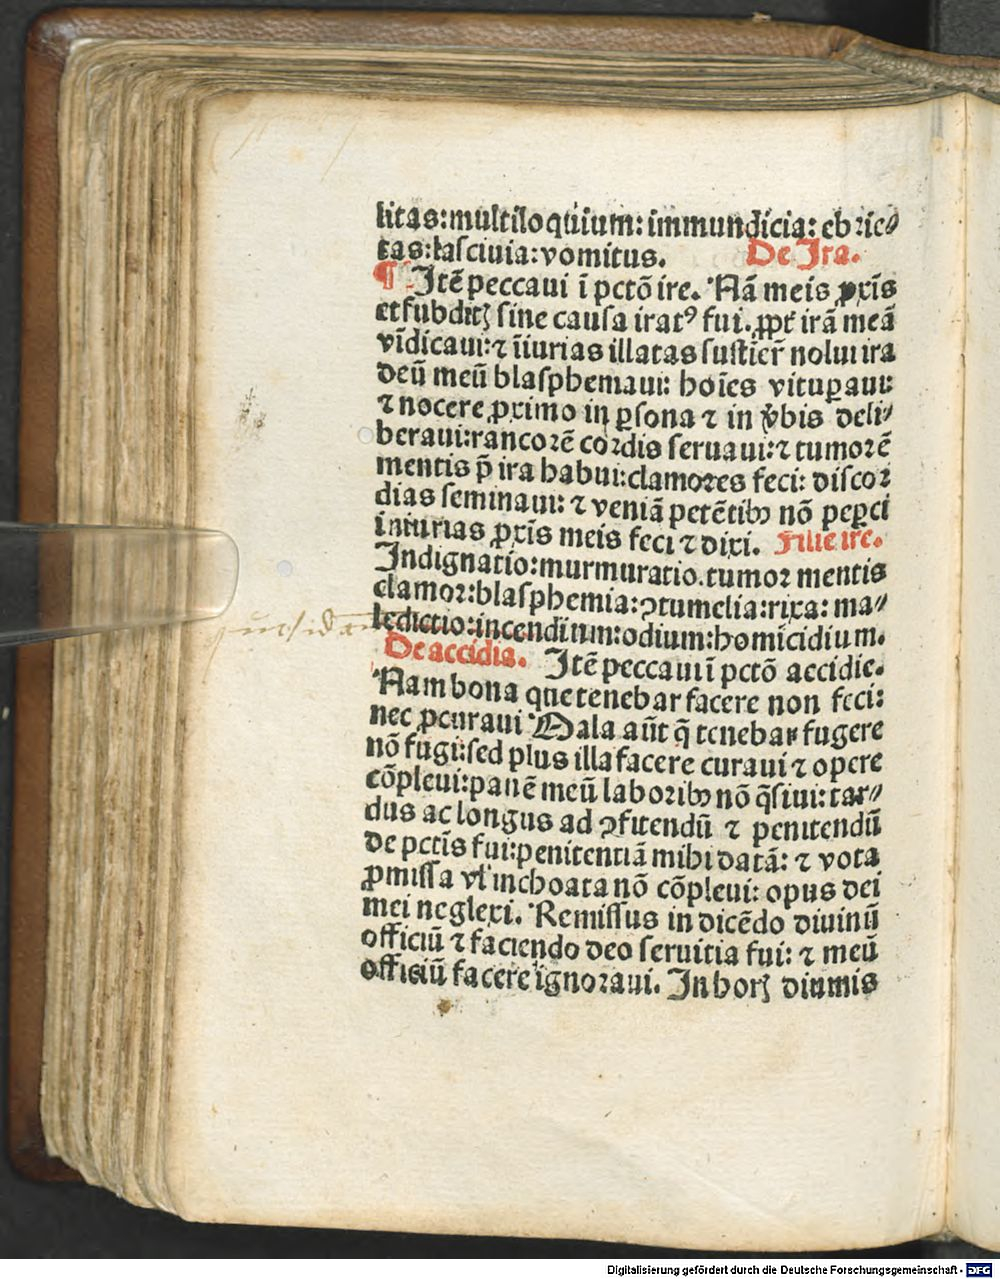 litas:multiloquium:immundicia: ebrie⸗
tas:lasciuia:vomitus. De Ira.
¶ Itē peccaui ī pctō ire. Nā meis ꝓxīs
et subditꝫ sine causa iratꝰ fui. ꝓpt̄ irā meā
vīdicaui:⁊ īiurias illatas sustier̄ nolui ira
deū meū blasphemaui: hoīes vituꝑaui:
⁊ nocere ꝓximo in ꝑsona ⁊ in v̄bis deli⸗
beraui:rancorē cordis seruaui:⁊ tumorē
mentis p̄ ira habui:clamores feci: discor
dias seminaui: ⁊ veniā petētibꝫ nō peꝑci
iniurias ꝓxīs meis feci ⁊ dixi. Filie ire.
Indignatio:murmuratio.tumor mentis
clamor:blasphemia:ꝯtumelia:rixa: ma⸗
ledictio:incenditum:odium:homicidium.
De accidia. Itē peccaui ī pctō accidie.
Nam bona que tenebar facere non feci:
nec ꝓcuraui Mala aūt q̄ tenebar fugere
nō fugi:sed plus illa facere curaui ⁊ opere
cōpleui:panē meū laboribꝫ nō q̄siui: tar⸗
dus ac longus ad ꝯfitendū ⁊ penitendū
de pctīs fui:penitentiā mihi datā: ⁊ vota
ꝓmissa vl̄ inchoata nō cōpleui: opus dei
mei neglexi. Remissus in dicēdo diuinū
officiū ⁊ faciendo deo seruitia fui: ⁊ meū
officiū facere ignoraui. In horꝫ diurnis
Digitalisierung gefördert durch die Deutsche Forschungsgemeinschaft - DFG